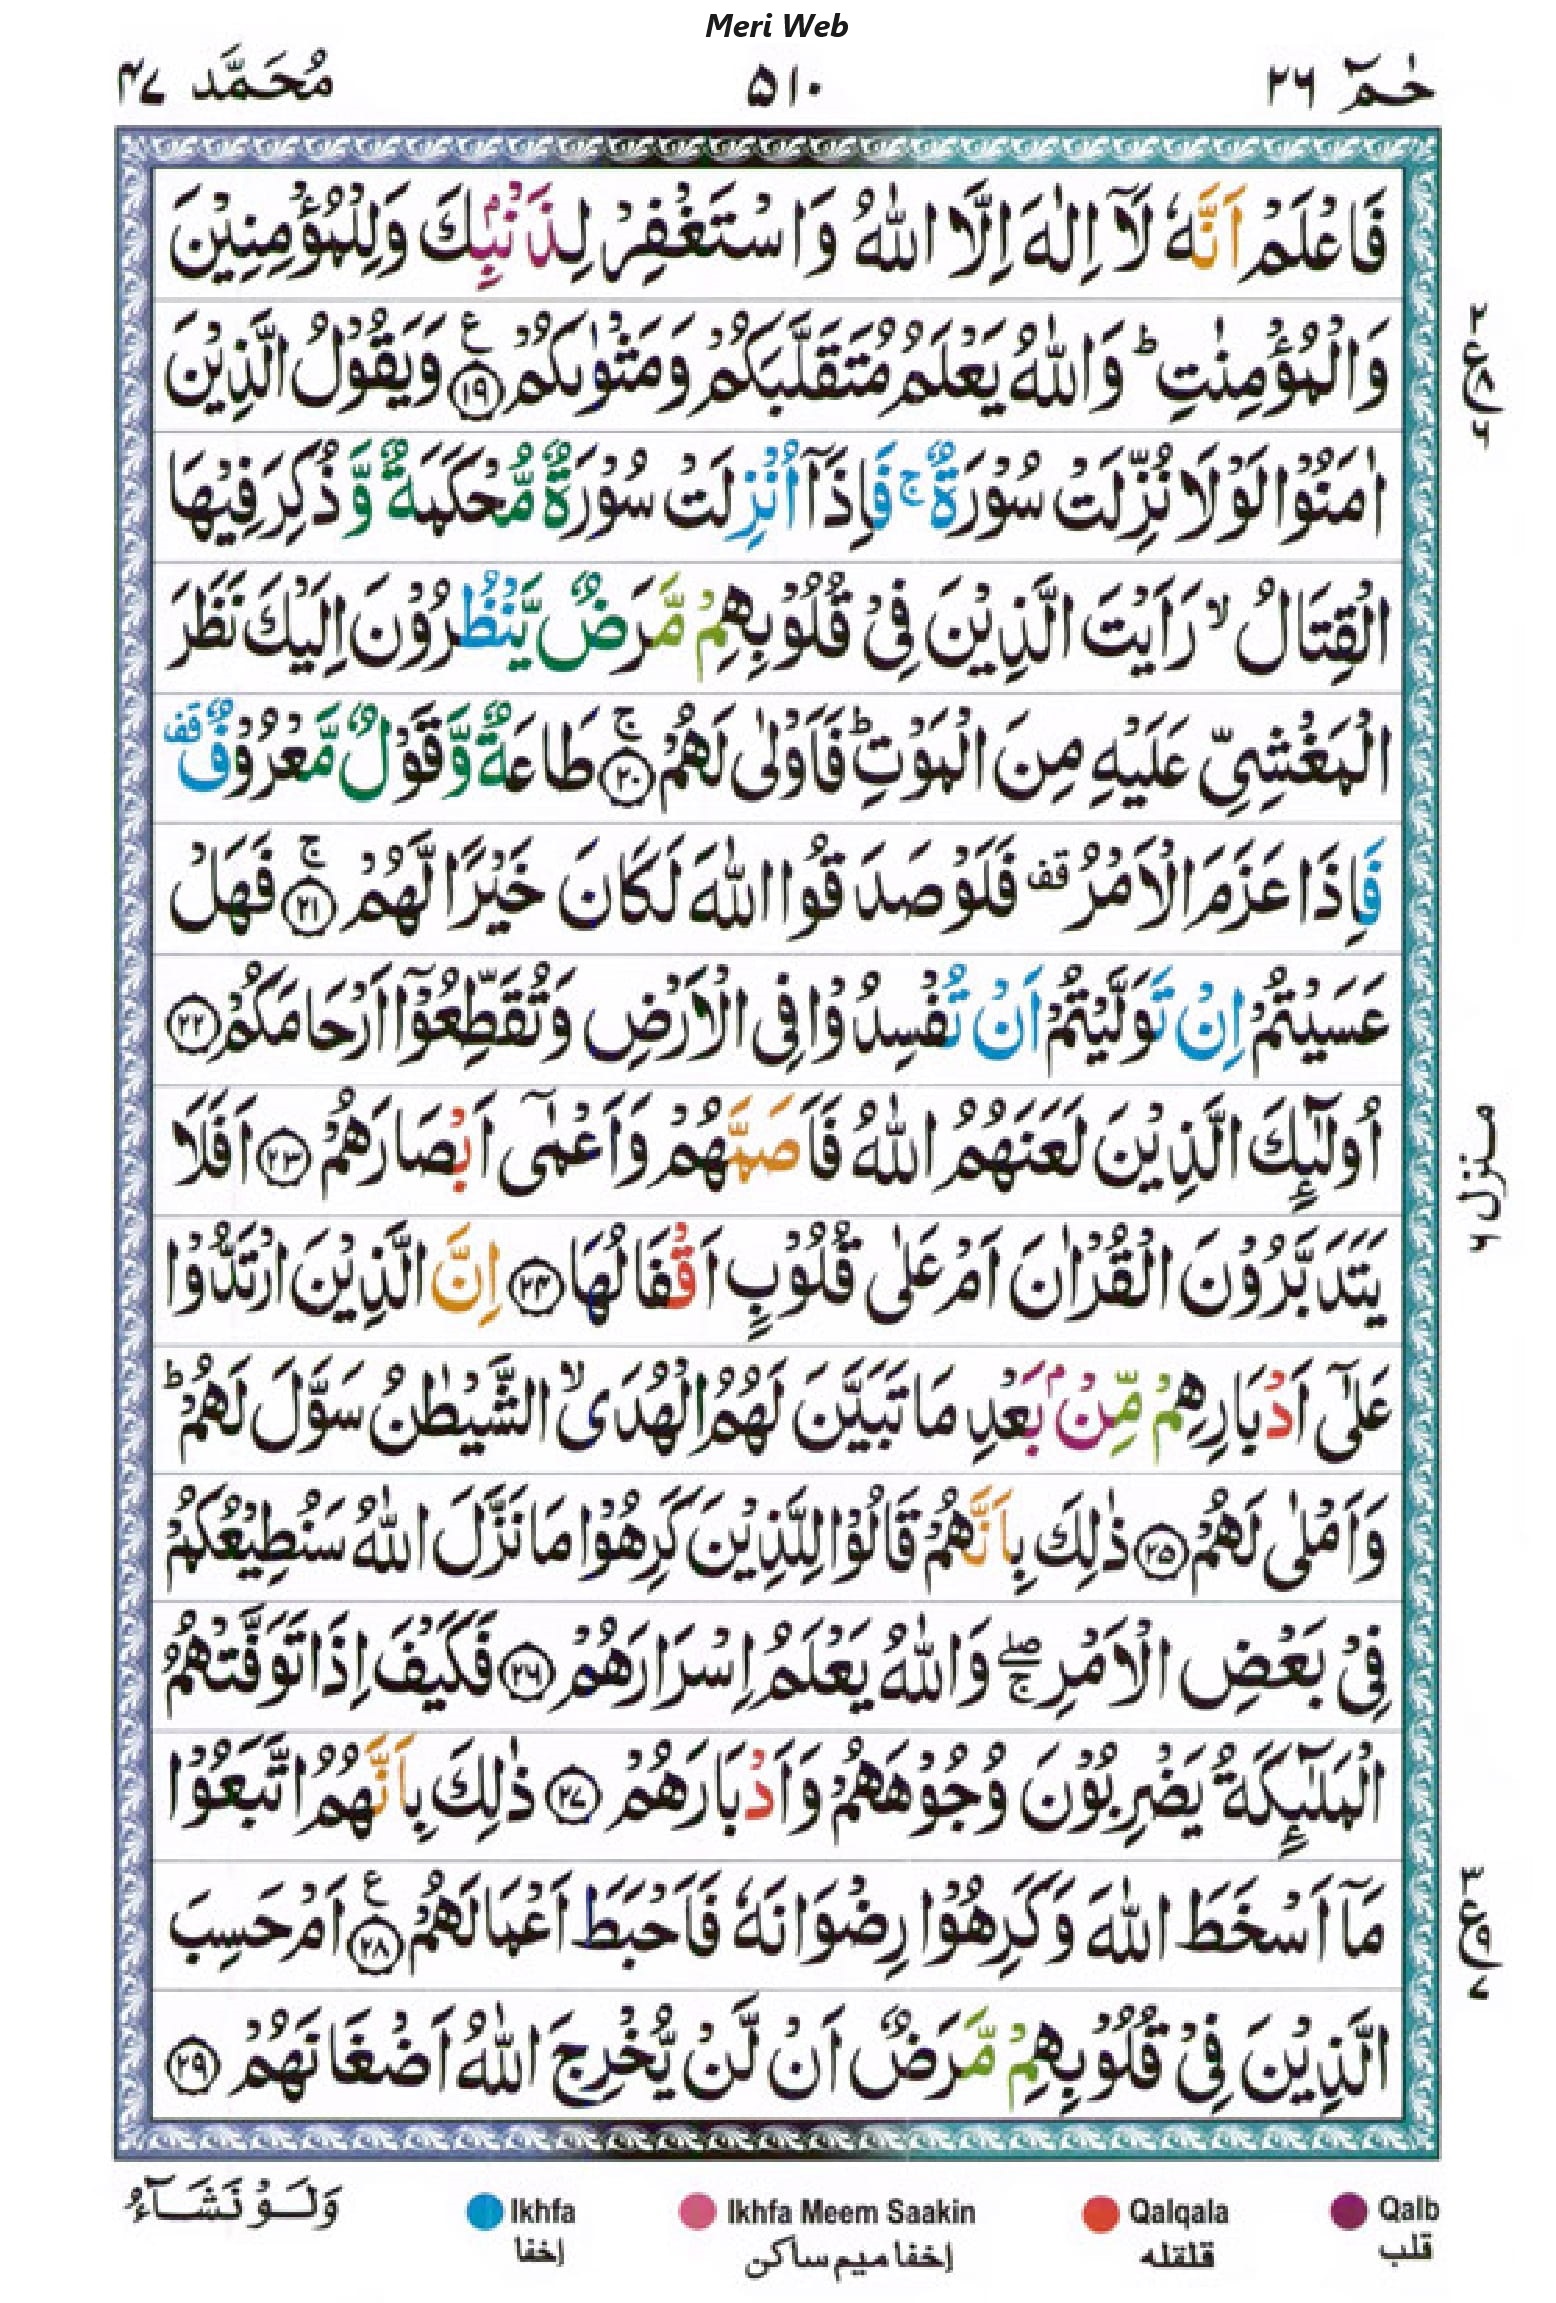 Meri Web
حٰمٓ ٢٦
٥١٠
مُحَمَّد ٤٧
فَاعْلَمْ اَنَّهٗ لَاۤ اِلٰهَ اِلَّا اللّٰهُ وَاسْتَغْفِرْ لِذَنْۢبِكَ وَلِلْمُؤْمِنِيْنَ
وَالْمُؤْمِنٰتِ ؕ وَاللّٰهُ يَعْلَمُ مُتَقَلَّبَكُمْ وَمَثْوٰىكُمْ ۧ ﴿١٩﴾ وَيَقُوْلُ الَّذِيْنَ
اٰمَنُوْا لَوْلَا نُزِّلَتْ سُوْرَةٌ ۚ فَاِذَاۤ اُنْزِلَتْ سُوْرَةٌ مُّحْكَمَةٌ وَّذُكِرَ فِيْهَا
الْقِتَالُ ۙ رَاَيْتَ الَّذِيْنَ فِيْ قُلُوْبِهِمْ مَّرَضٌ يَّنْظُرُوْنَ اِلَيْكَ نَظَرَ
الْمَغْشِيِّ عَلَيْهِ مِنَ الْمَوْتِ ؕ فَاَوْلٰى لَهُمْ ۚ ﴿٢٠﴾ طَاعَةٌ وَّقَوْلٌ مَّعْرُوْفٌ قف
فَاِذَا عَزَمَ الْاَمْرُ قف فَلَوْ صَدَقُوا اللّٰهَ لَكَانَ خَيْرًا لَّهُمْ ۚ ﴿٢١﴾ فَهَلْ
عَسَيْتُمْ اِنْ تَوَلَّيْتُمْ اَنْ تُفْسِدُوْا فِي الْاَرْضِ وَتُقَطِّعُوْۤا اَرْحَامَكُمْ ﴿٢٢﴾
اُولٰٓئِكَ الَّذِيْنَ لَعَنَهُمُ اللّٰهُ فَاَصَمَّهُمْ وَاَعْمٰۤى اَبْصَارَهُمْ ﴿٢٣﴾ اَفَلَا
يَتَدَبَّرُوْنَ الْقُرْاٰنَ اَمْ عَلٰى قُلُوْبٍ اَقْفَالُهَا ﴿٢٤﴾ اِنَّ الَّذِيْنَ ارْتَدُّوْا
عَلٰۤى اَدْبَارِهِمْ مِّنْۢ بَعْدِ مَا تَبَيَّنَ لَهُمُ الْهُدَى ۙ الشَّيْطٰنُ سَوَّلَ لَهُمْ ؕ
وَاَمْلٰى لَهُمْ ﴿٢٥﴾ ذٰلِكَ بِاَنَّهُمْ قَالُوْا لِلَّذِيْنَ كَرِهُوْا مَا نَزَّلَ اللّٰهُ سَنُطِيْعُكُمْ
فِيْ بَعْضِ الْاَمْرِ ۖۚ وَاللّٰهُ يَعْلَمُ اِسْرَارَهُمْ ﴿٢٦﴾ فَكَيْفَ اِذَا تَوَفَّتْهُمُ
الْمَلٰٓئِكَةُ يَضْرِبُوْنَ وُجُوْهَهُمْ وَاَدْبَارَهُمْ ﴿٢٧﴾ ذٰلِكَ بِاَنَّهُمُ اتَّبَعُوْا
مَاۤ اَسْخَطَ اللّٰهَ وَكَرِهُوْا رِضْوَانَهٗ فَاَحْبَطَ اَعْمَالَهُمْ ۧ ﴿٢٨﴾ اَمْ حَسِبَ
الَّذِيْنَ فِيْ قُلُوْبِهِمْ مَّرَضٌ اَنْ لَّنْ يُّخْرِجَ اللّٰهُ اَضْغَانَهُمْ ﴿٢٩﴾
٢
ع ٨
٦
منزل ٦
٣
ع ٩
٧
وَلَوْ نَشَآءُ
Ikhfa
إخفا
Ikhfa Meem Saakin
إخفا ميم ساكن
Qalqala
قلقله
Qalb
قلب